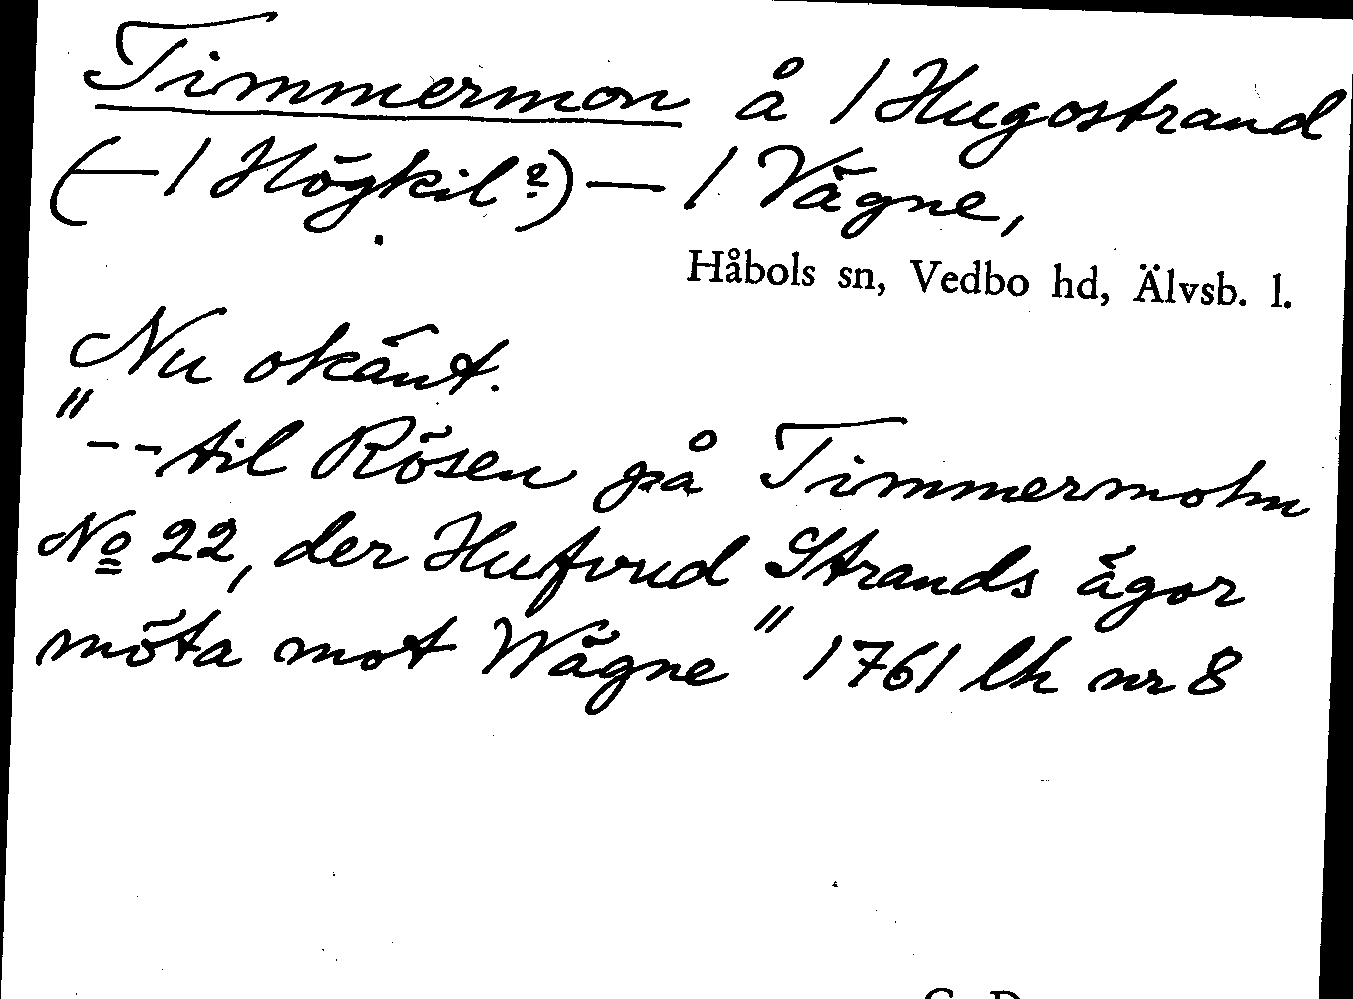 Timmermon å / Hugostrand
(— / Högkil?) — / Vägne,
Håbols sn, Vedbo hd, Älvsb. l.
Nu okänt.
"-- til Rösen på Timmermohn
No 22, der Hufvud Strands ägor
möta mot Wägne" 1761 lh nr 8